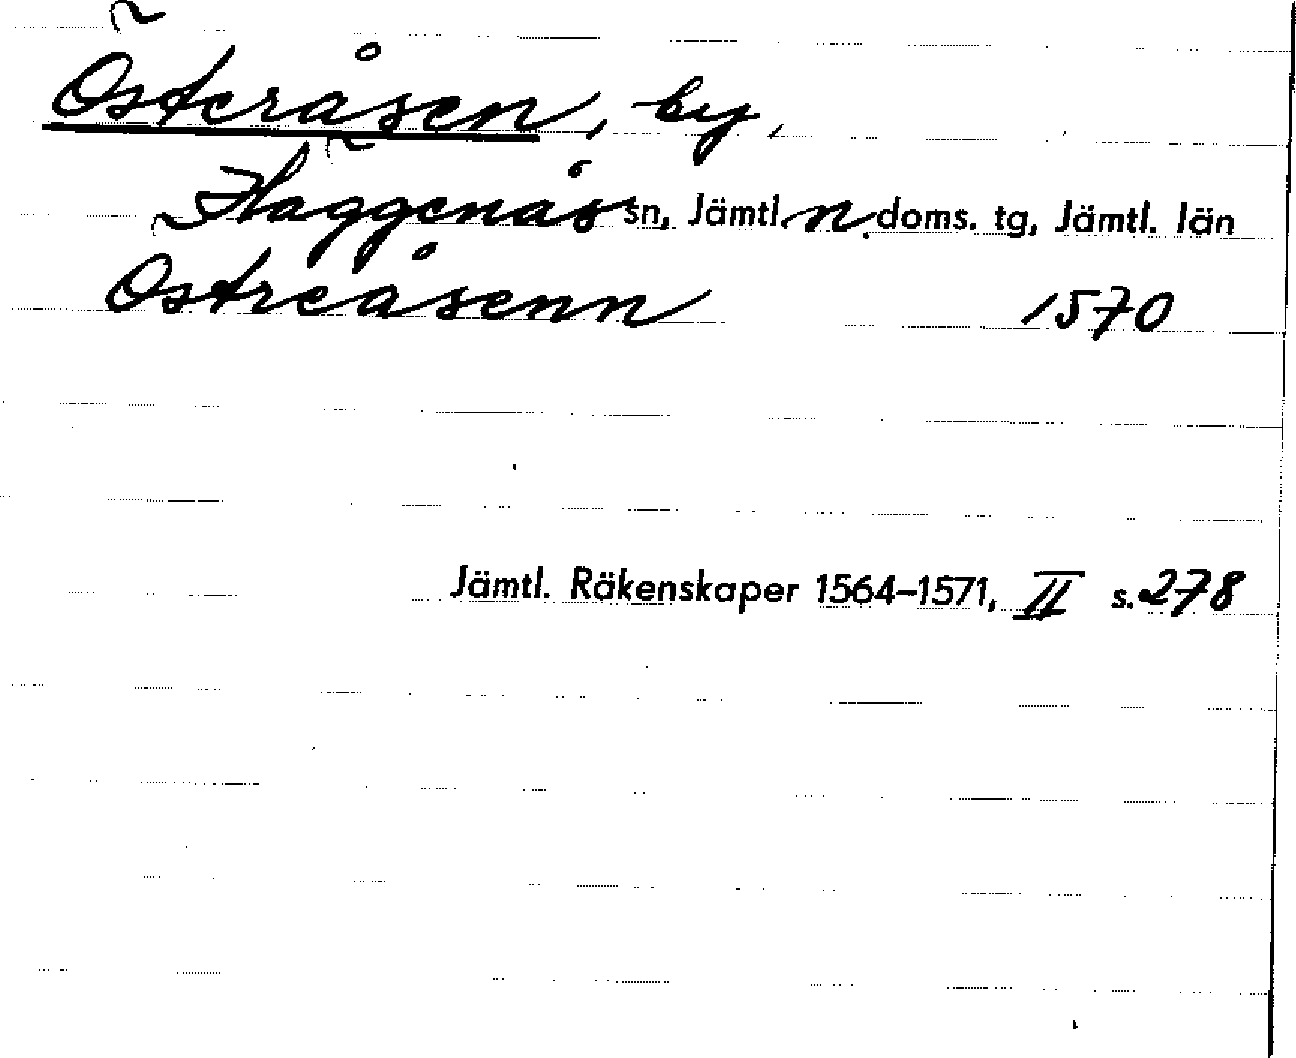 Österåsen, by,
Häggenås sn, Jämtl. n. doms. tg, Jämtl. län
Ostreåsenn 1570
Jämtl. Räkenskaper 1564–1571, II s. 278